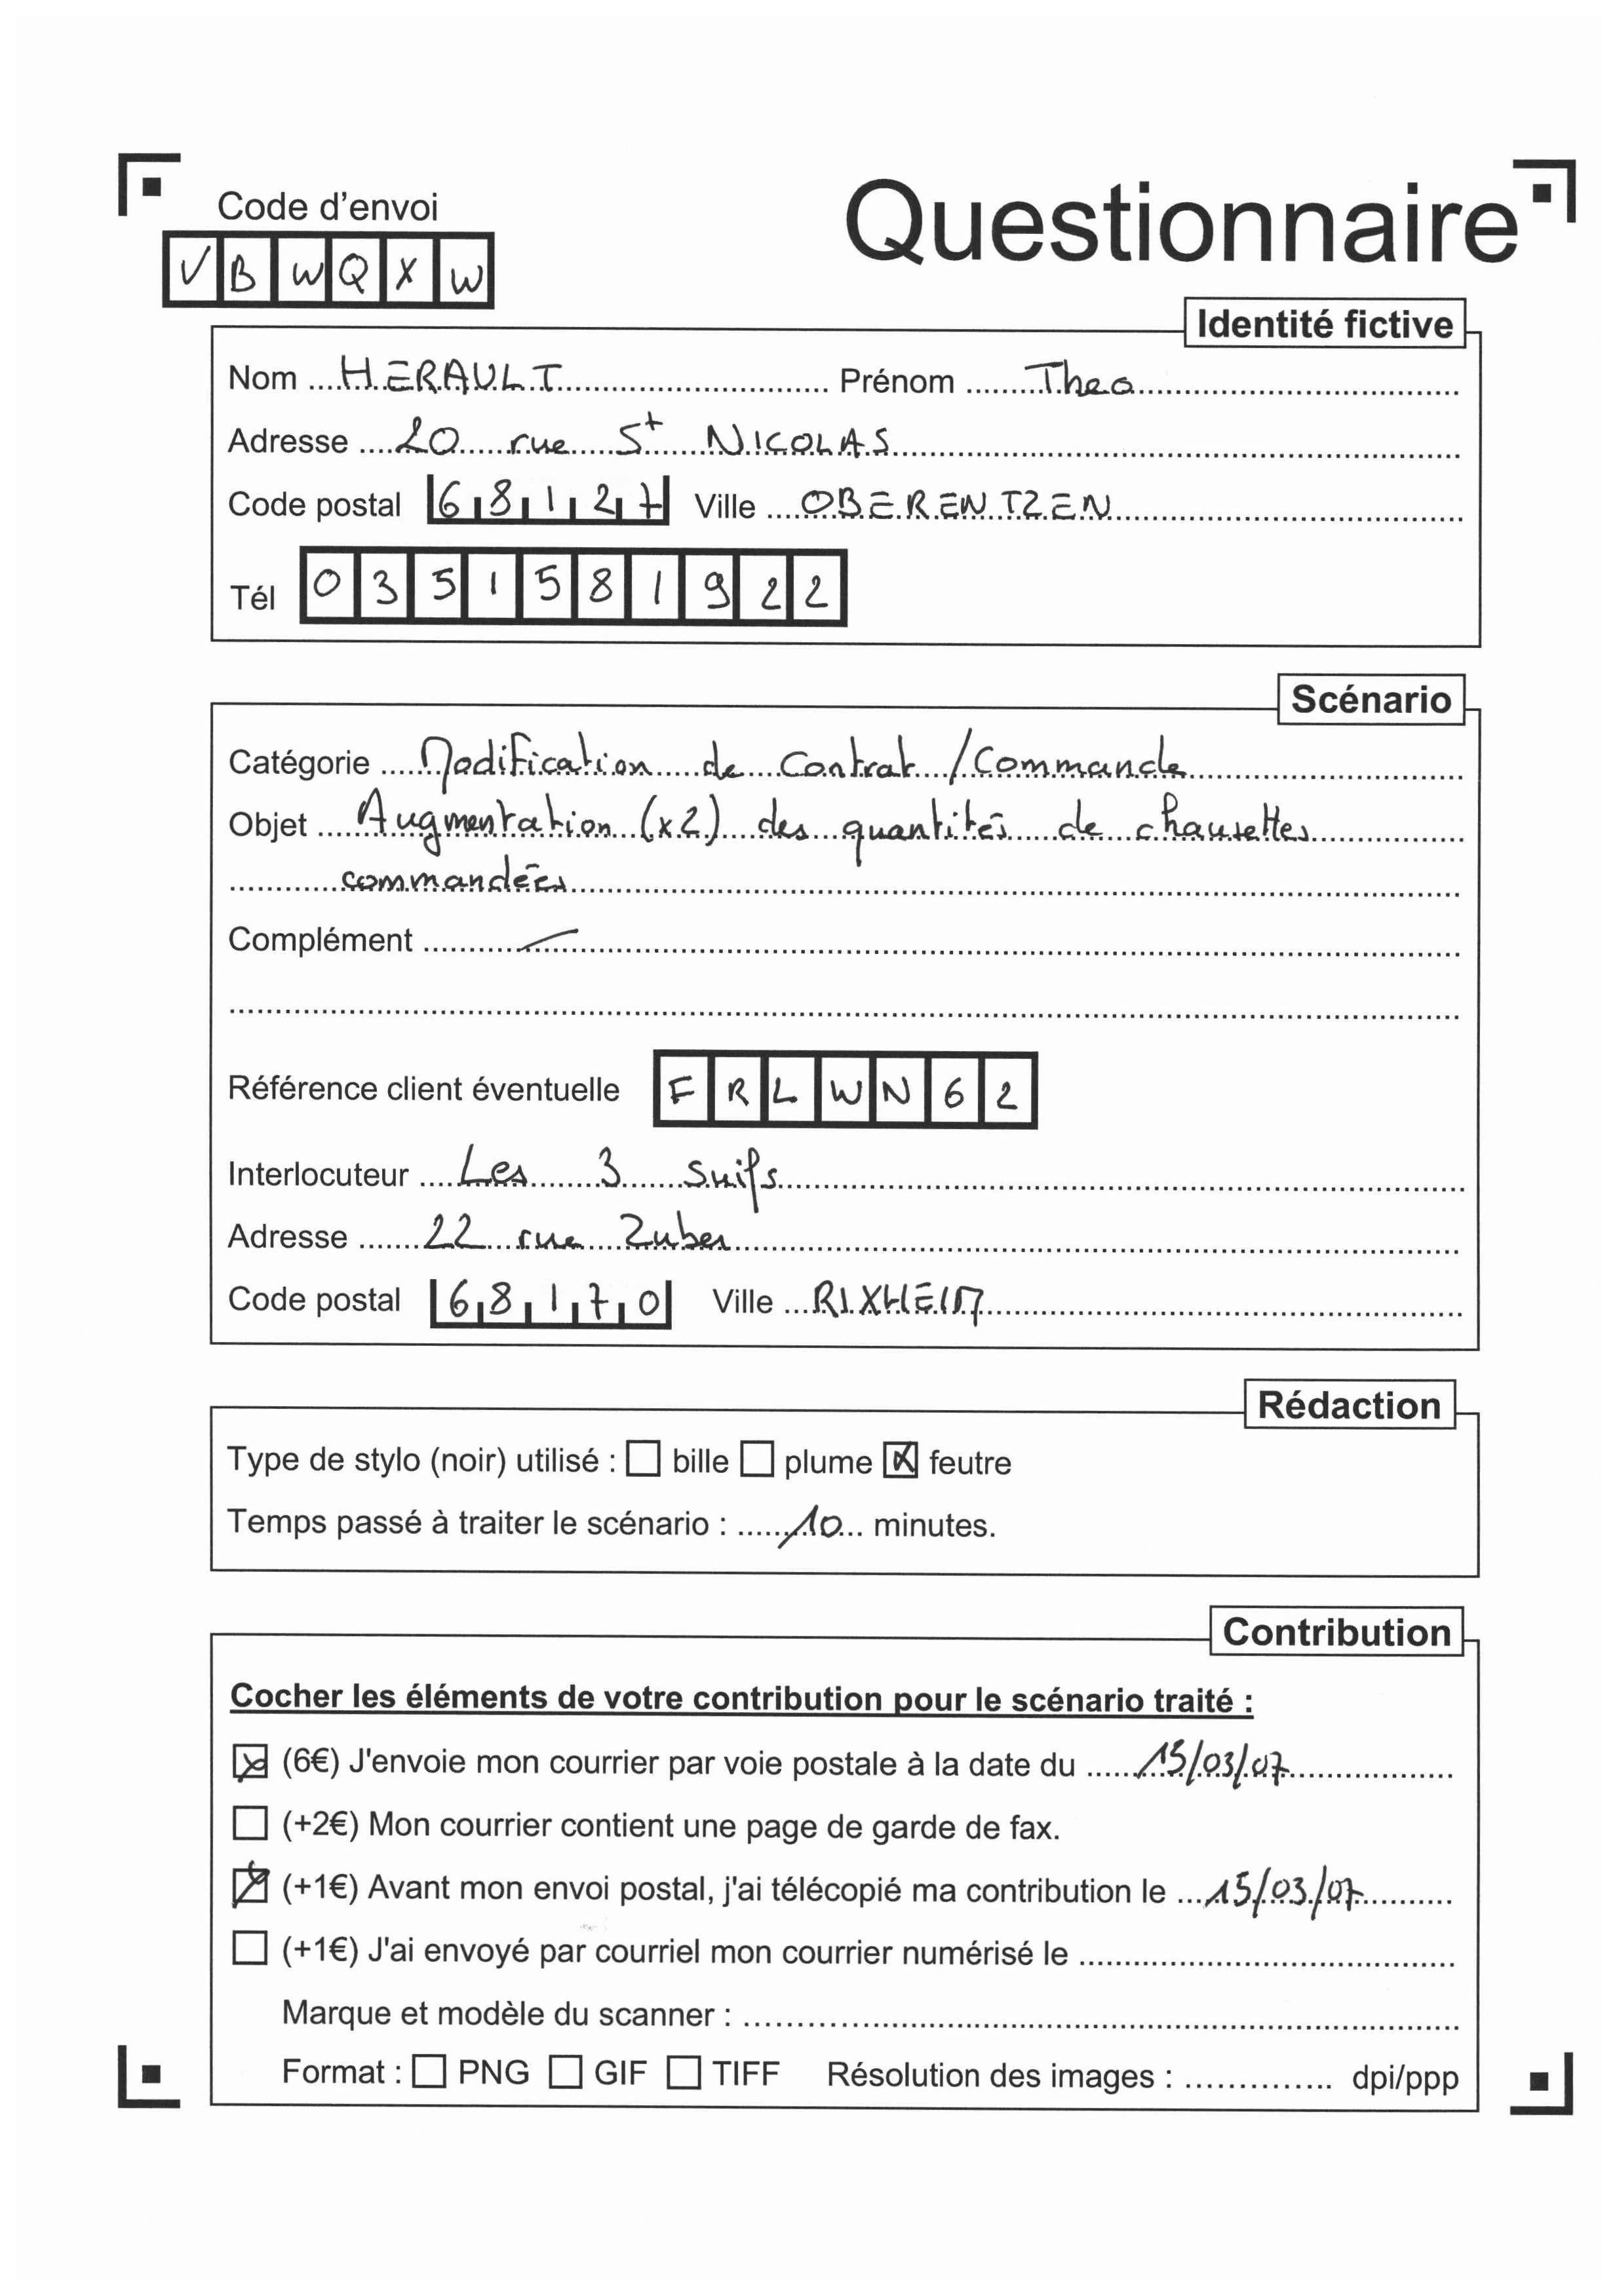 Code d'envoi
Questionnaire
V B W Q X W
Identité fictive
Nom HERAULT Prénom Theo
Adresse 20 rue St NICOLAS
Code postal 68127 Ville OBERENTZEN
Tél 0351581922
Scénario
Catégorie Modification de contrat / Commande
Objet Augmentation (x2) des quantités de chaussettes
commandées
Complément —
Référence client éventuelle F R L W N 6 2
Interlocuteur Les 3 suifs
Adresse 22 rue Zuber
Code postal 68170 Ville RIXHEIM
Rédaction
Type de stylo (noir) utilisé : ☐ bille ☐ plume ☒ feutre
Temps passé à traiter le scénario : 10 minutes.
Contribution
Cocher les éléments de votre contribution pour le scénario traité :
☒ (6€) J'envoie mon courrier par voie postale à la date du 15/03/07
☐ (+2€) Mon courrier contient une page de garde de fax.
☒ (+1€) Avant mon envoi postal, j'ai télécopié ma contribution le 15/03/07
☐ (+1€) J'ai envoyé par courriel mon courrier numérisé le
Marque et modèle du scanner :
Format : ☐ PNG ☐ GIF ☐ TIFF Résolution des images : dpi/ppp